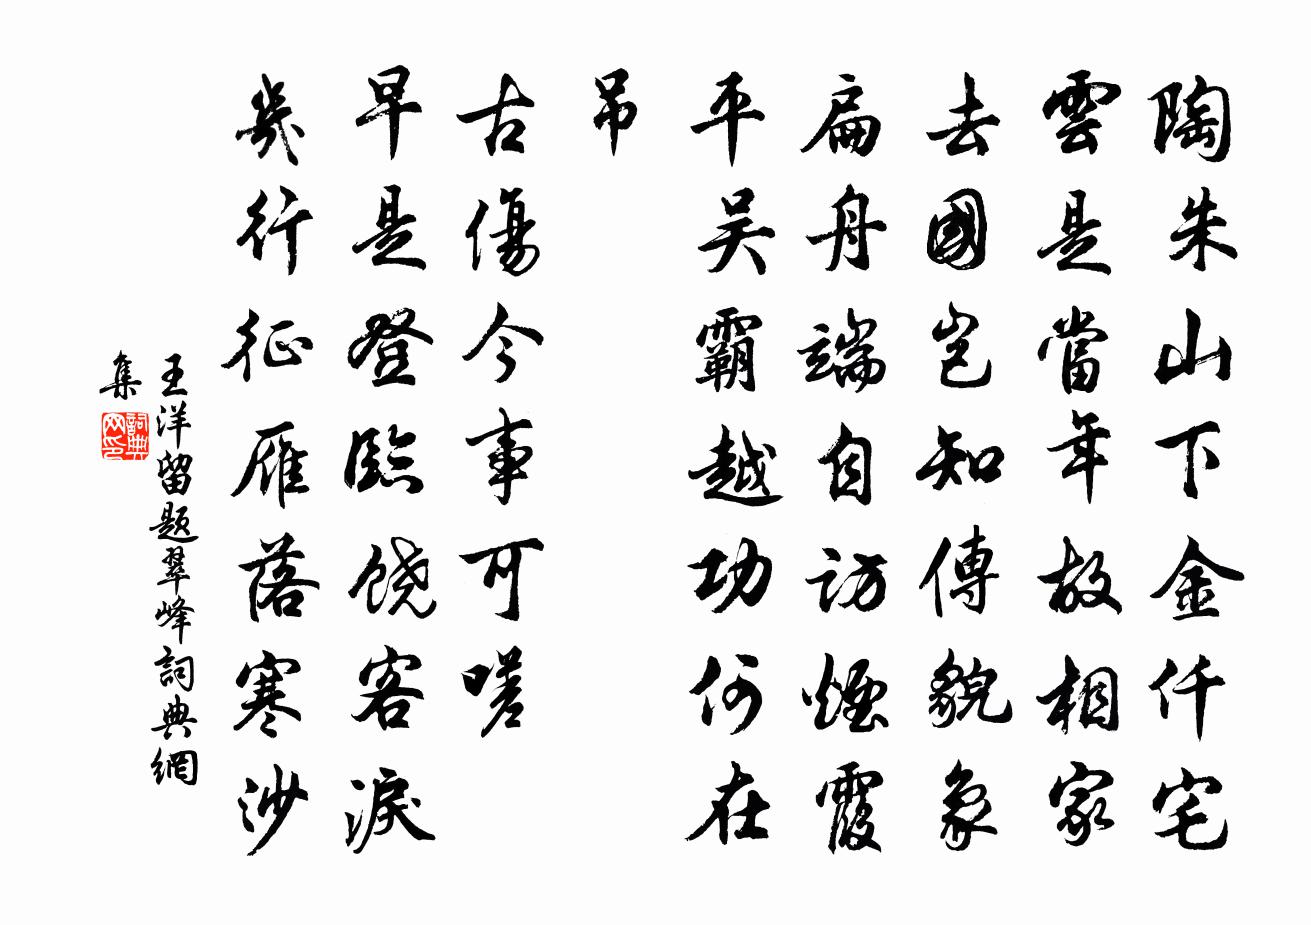 陶朱山下金仟宅
雲是當年故相家
去國豈知傳貌象
扁舟端自訪煙霞
平吴霸越功何在
吊
古傷今事可嗟
早是登臨饒客淚
幾行征雁落寒沙
王洋留題翠峰詞典網
集
詞典网印